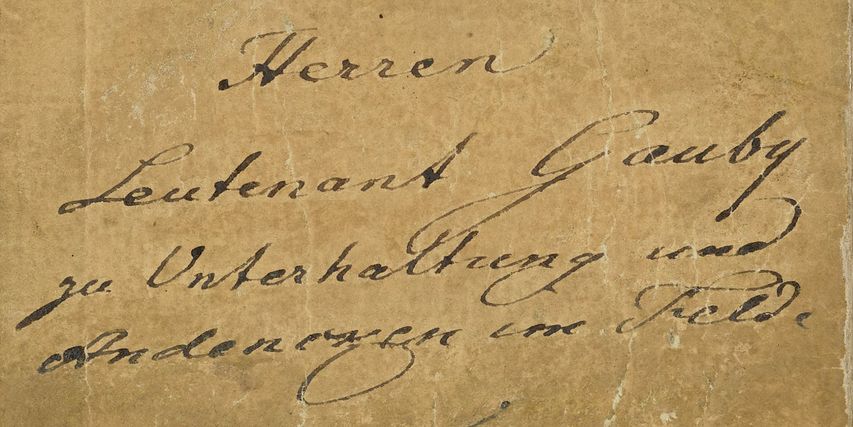 Herren
Leutenant Gauby
zu Unterhaltung und
im Felde